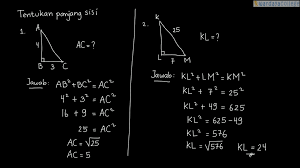 Tentukan panjang sisi
1.
A
4
B 3 C
AC = ?
Jawab:
AB² + BC² = AC²
4² + 3² = AC²
16 + 9 = AC²
25 = AC²
AC = √25
AC = 5
2.
K
25
L 7 M
KL = ?
Jawab:
KL² + LM² = KM²
KL² + 7² = 25²
KL² + 49 = 625
KL² = 625 - 49
KL² = 576
KL = √576
KL = 24